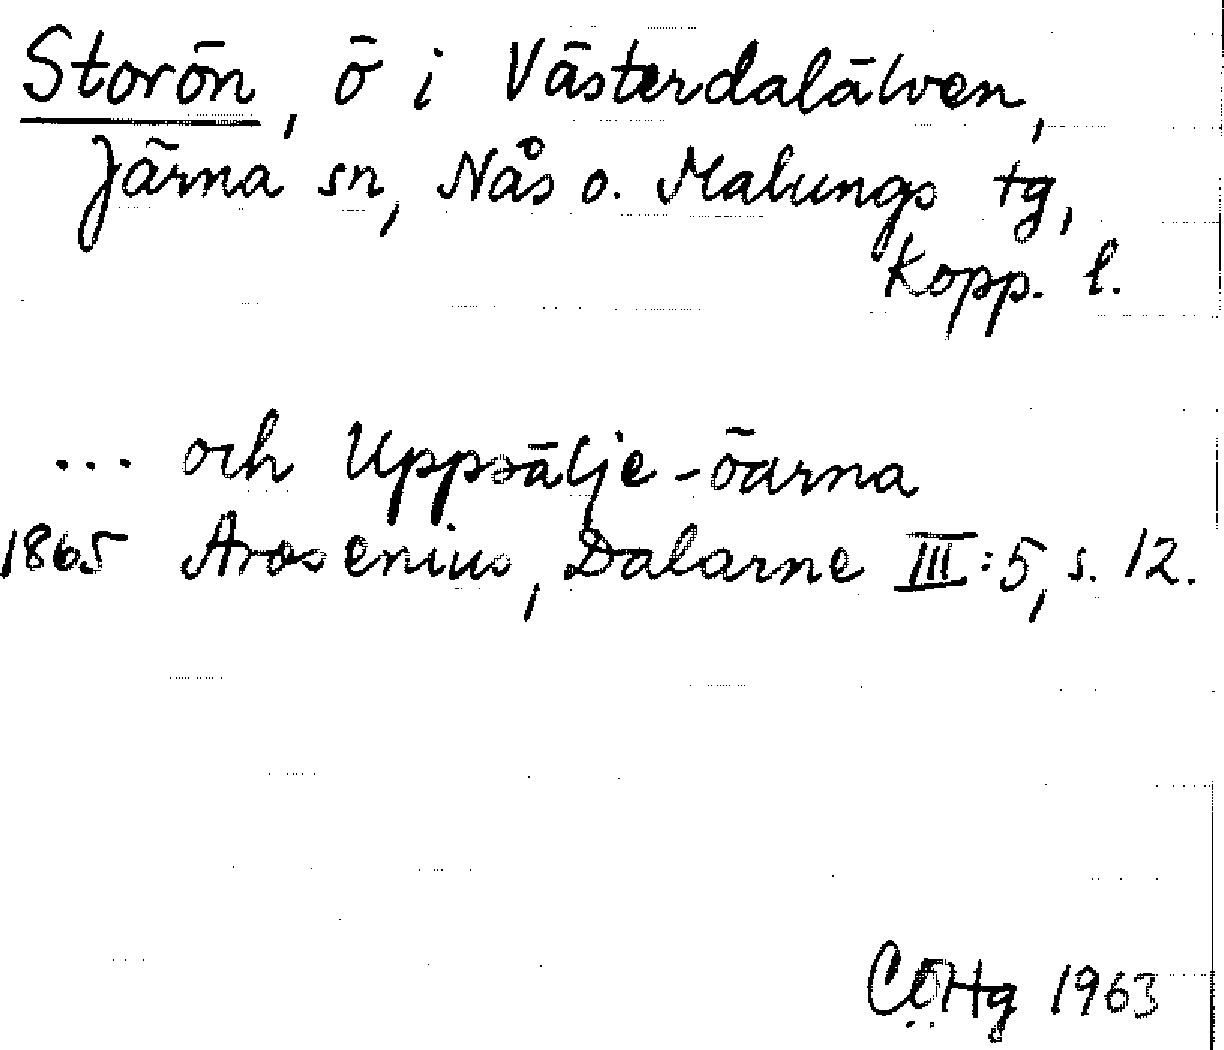 Storön, ö i Västerdalälven,
Järna sn, Nås o. Malungs tg,
Kopp. l.
... och Uppsälje-öarna
1865 Arosenius, Dalarne III:5, s. 12.
CÖHg 1963